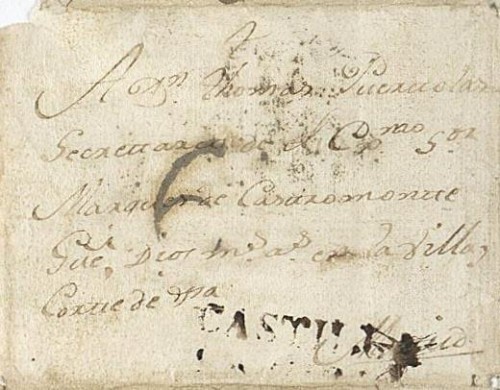 A Dn. Thomas Puertolas
Secrettario de el Exmo Sor
Marques de Castromontte
Gue, Dios ms as en la Villa,
Corte de
CASTILLA
Madrid